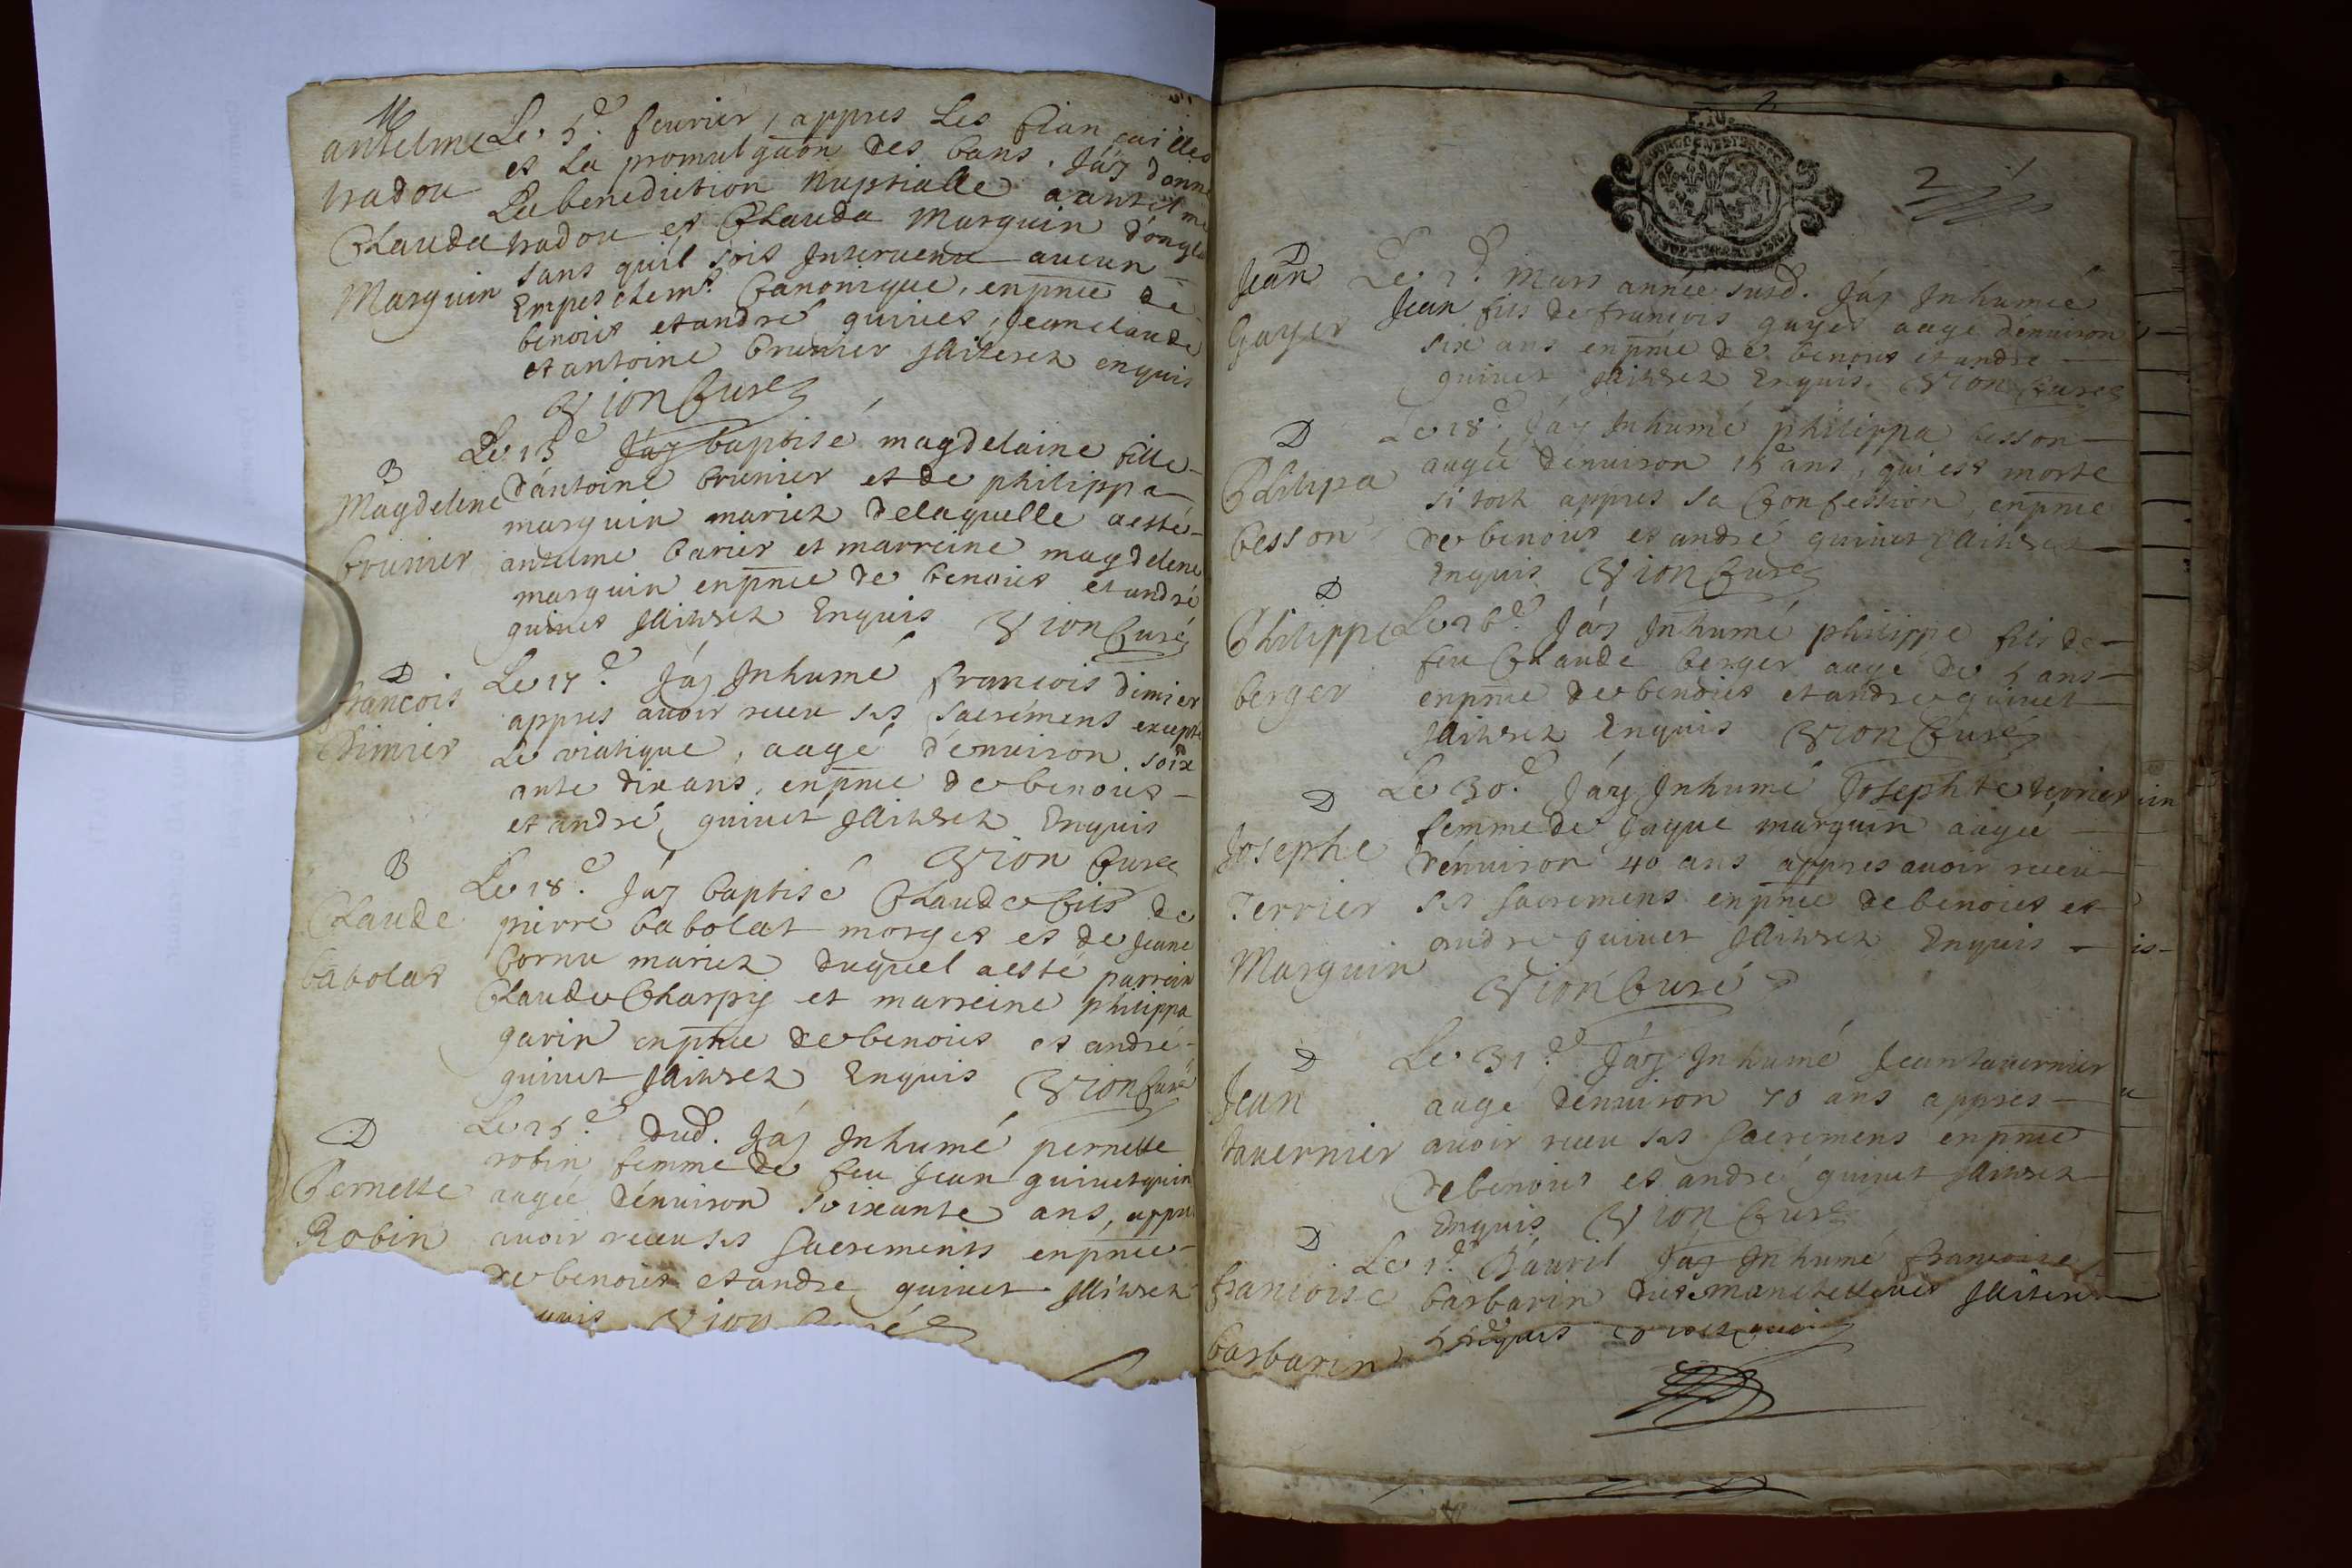 M
anthelme
tradou
Clauda
Marguin
Le 5.e feurier, appres Les fiancailles
et La promulgãon des bans. Jáy donné
La benediction Nuptialle a antelme
tradou et Clauda Marguin
sans quil soit Interuenu aucun
Empeschem.t Canonique, enpñce de
benoict et andré guiuet, Jean claude
et antoine brunier Illiterez enquis
Vion Curé
B
Magdelene
brunier
Le 13.e Jáy baptisé magdelaine fille
dántoine brunier et de philippa
marguin mariez delaquelle aesté
antelme barier et marreine magdelene
marguin enpñce de benoict et andré
guiuet Illiterez Enquis Vion Curé
D
francois
dimier
Le 17.e Jáy Inhumé francois dimier
appres auoir receu ses sacrémens excepté
Le viatique, aagé dénuiron soix
ante dix ans, enpñce de benoict
et andré guiuet Illiterez Enquis
Vion Curé
B
Claude
babolat
Le 18.e Jáy baptisé Claude fils de
pierre babolat morget et de Jeane
Cornu mariez duquel aesté parrein
Claude Charpy et marreine philippa
garin enpñce de benoict et andré
guiuet Illiterez Enquis Vion Curé
D
Pernette
Robin
Le 25.e dud. Jáy Inhumé pernette
robin femme de feu Jean guiuet
aagée dénuiron soixante ans, appres
auoir receu ses Sacrements enpñce
de benoict et andre guiuet Illiterez
Vion Curé
2
D
Jean
Gayet
Le Mars année susd. Jáy Inhumé
Jean fils de francois gayet aagé dénuiron
six ans enpñce de benoict et andre
guiuet Illiterez Enquis. Vion Curé
D
Philipa
besson
Le 18.e Jáy Inhumé philippa besson
aagée dénuiron 15 ans, qui est morte
si tost appres sa Confession, enpñce
de benoict et andré guiuet Illiterez
Enquis Vion Curé
D
Philippe
berger
Le 26.e Jáy Inhumé philippe fils de
feu Claude berger aagé de 5 ans
enpñce de benoict et andre guiuet
Illiterez Enquis Vion Curé
D
Josephe
Terrier
Marguin
Le 30.e Jáy Inhumé Josephte terrier
femme de Jaque marguin aagée
dénuiron 40 ans appres auoir receu
ses sacremens enpñce de benoict et
andre guiuet Illiterez Enquis
Vion Curé
D
Jean
tauernier
Le 31.e Jáy Inhumé Jean tauernier
aagé dénuiron 70 ans appres
auoir receu ses sacremens enpñce
de benoict et andré guiuet Illiterez
Enquis Vion Curé
D
francoise
barbarin
Le 1.e dáuril Jáy Inhumé francoise
barbarin